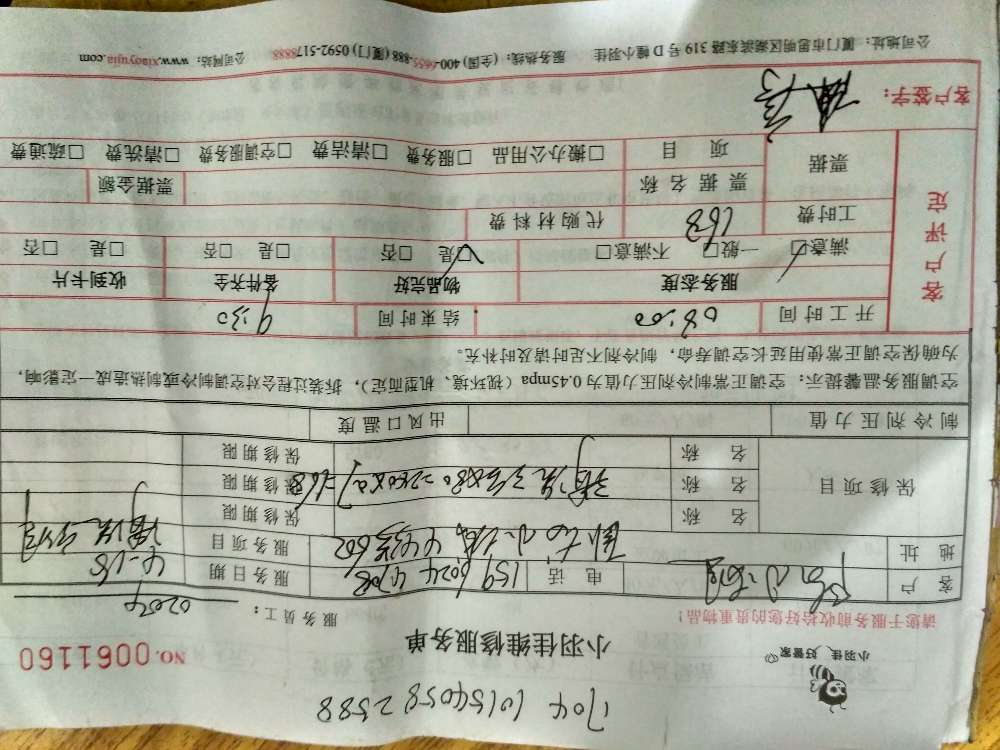 1704 10154058 2588
小羽佳，好管家
小羽佳维修服务单
NO.0061160
请您于服务前收拾好您的贵重物品！
服务员工：02054
客户 电话 159 6024 4708 服务日期 4-16
地址 602 服务项目 清洗空调
保修项目
名称 保修期限
名称 清洗3台X80=240X0.7=168 保修期限
名称 保修期限
制冷剂压力值 出风口温度
空调服务温馨提示：空调正常制冷剂压力值为0.45mpa（视环境、机型而定），拆装过程会对空调制冷或制热造成一定影响，
为确保空调正常使用延长空调寿命，制冷剂不足时请及时补充。
客户评定
开工时间 08:00 结束时间 9:30
服务态度 物品完好 备件齐全 收到卡片
满意☑ 一般□ 不满意□ ☑是 □否 □是 □否 □是 □否
工时费 168 代购材料费
票据 票据名称 票据金额
项目 □搬办公用品 □服务费 □清洁费 □空调服务费 □清洗费 □疏通费
客户签字：
公司地址：厦门市思明区湖滨东路 319 号 D 幢小羽佳 服务热线：(全国) 400-6655-888 (厦门) 0592-5178888 公司网站：www.xiaoyujia.com